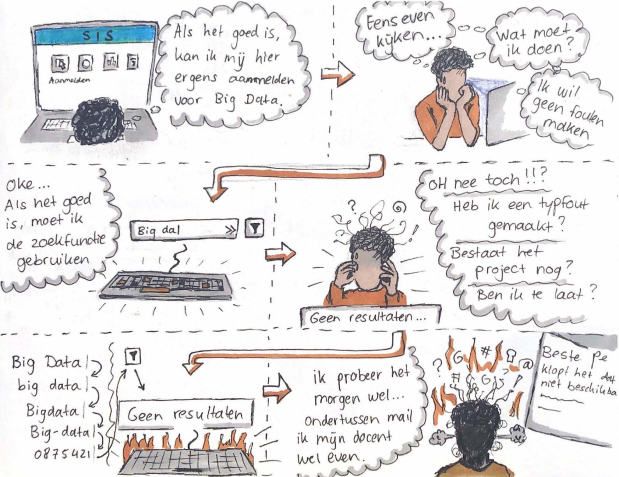 SIS
Aanmelden
Als het goed is,
kan ik mij hier
ergens aanmelden
voor Big Data.
Eens even
kijken...
Wat moet
ik doen?
Ik wil
geen fouten
maken
Oke...
Als het goed
is, moet ik
de zoekfunctie
gebruiken
Big dal
»
?
@
!
Geen resultaten...
OH nee toch!!?
Heb ik een typfout
gemaakt?
Bestaat het
project nog?
Ben ik te laat?
Big Data
big data
Bigdata
Big-data
0875421
Geen resultaten
ik probeer het
morgen wel...
ondertussen mail
ik mijn docent
wel even.
? G # ! @
Beste Pe
klopt het dat
niet beschikba